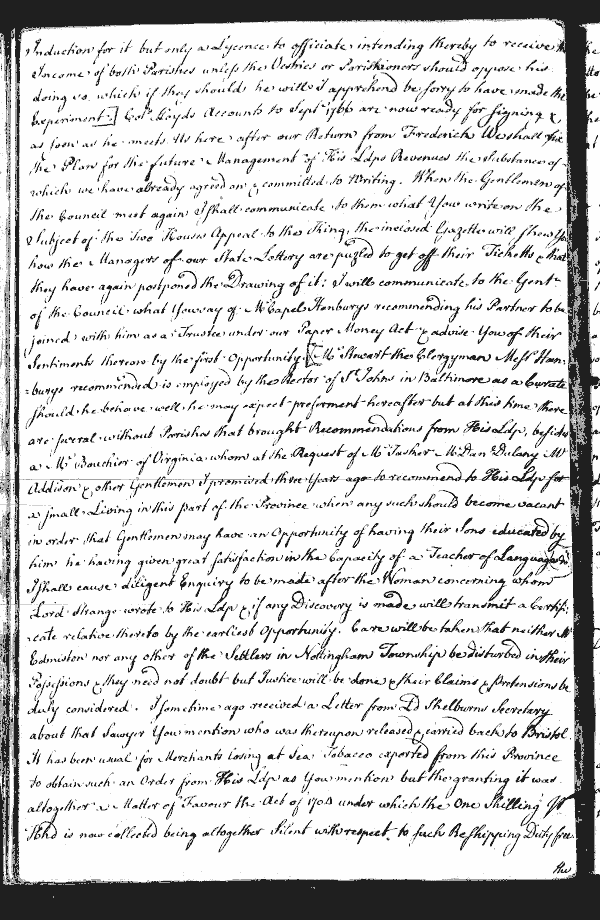 Induction for it but only a Lycence to officiate intending thereby to receive the
Income of both Parishes unless the Vestries or Parishioners should oppose his
doing so, which if they should he will I apprehend be sorry to have made the
Experiment.] Col. Lloyds Accounts to Sept. 1766 are now ready for signing &
as soon as he meets Us here after our Return from Frederick We shall fix
the Plan for the future Management of His Ldps Revenues the Substance of
which we have already agreed on & committed to Writing. When the Gentlemen of
the Council meet again I shall communicate to them what You write on the
Subject of the Two Houses Appeal to the King, the inclosed Gazette will shew You
how the Managers of our State Lottery are puzled to get off their Ticketts & that
they have again postponed the Drawing of it; I will communicate to the Gent.
of the Council what You say of Mr Capel Hanburys recommending his Partner to be
joined with him as a Trustee under our Paper Money Act & advise You of their
Sentiments thereon by the first Opportunity. [Mr Stewart the Clergyman Messrs Han-
-burys recommended is employed by the Rector of St Johns in Baltimore as a Curate
should he behave well he may expect preferment hereafter but at this time there
are several without Parishes that brought Recommendations from His Ldp, besides
a Mr Bouchier of Virginia whom at the Request of Mr Tasker Mr Dan Dulany Mr
Addison & other Gentlemen I promised three Years ago to recommend to His Ldp for
a small Living in this part of the Province when any such should become vacant
in order that Gentlemen may have an Opportunity of having their Sons educated by
him he having given great Satisfaction in the Capacity of a Teacher of Languages.]
I shall cause diligent Enquiry to be made after the Woman concerning whom
Lord Strange wrote to His Ldp & if any Discovery is made will transmit a Certifi-
-cate relative thereto by the earliest Opportunity. Care will be taken that neither Mr
Edmiston nor any other of the Settlers in Nottingham Township be disturbed in their
Possessions & they need not doubt but Justice will be done & their Claims & Pretensions be
duly considered. I sometime ago received a Letter from Ld Shelburns Secretary
about that Sawyer You mention who was thereupon released & carried back to Bristol.
It has been usual for Merchants losing at Sea Tobacco exported from this Province
to obtain such an Order from His Ldp as You mention but the granting it was
altogether a Matter of Favour the Act of 1704 under which the One Shilling
Hhd is now collected being altogether Silent with respect to such Reshipping Duty free
the